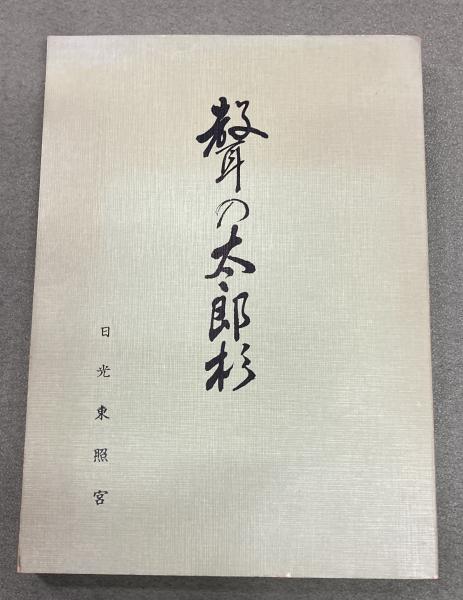 聲の太郎杉
日光東照宮